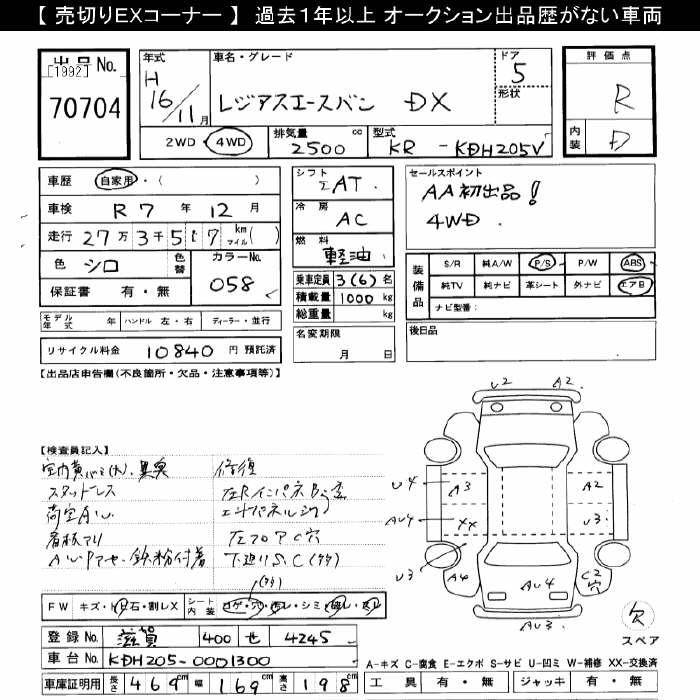 【 売切りEXコーナー 】 過去１年以上 オークション出品歴がない車両
出品No.
[1992]
70704
年式
H
16/11月
車名・グレード
レジアスエースバン DX
ドア
5
形状
評価点
R
内装
D
2WD・4WD
排気量
2500 cc
型式
KR - KDH205V
車歴 自家用・( )
車検 R7年12月
走行 27万3千5百7 km マイル( )
色 シロ 色替
カラーNo.
058
保証書 有・無
シフト
AT
冷房
AC
燃料
軽油
乗車定員 3(6) 名
積載量 1000 kg
総重量 kg
セールスポイント
AA初出品!
4WD.
装備品
S/R 純A/W P/S P/W ABS
純TV 純ナビ 革シート 外ナビ エアB
ナビ型番:
モデル年式 年 ハンドル 左・右 ディーラー・並行
名変期限
月 日
後日品
リサイクル料金 10840 円 預託済
【出品店申告欄(不良箇所・欠品・注意事項等)】
U2 A2
【検査員記入】
異臭
修復
スタッドレス
看板アリ
鉄粉付着
下廻りS.C(多)
U4 A3 A2
AU4 XX U3
U3 A4 AU4 C2穴
AU3
欠
スペア
FW キズ・ヒビ石・割レX
シート内装 コゲ・穴・汚レ・シミ・破レ・スレ
登録No. 滋賀 400 せ 4245
車台No. KDH205-0001300
車庫証明用 長さ 469cm 幅 169cm 高さ 198cm
A-キズ C-腐食 E-エクボ S-サビ U-凹ミ W-補修 XX-交換済
工具 有・無 ジャッキ 有・無